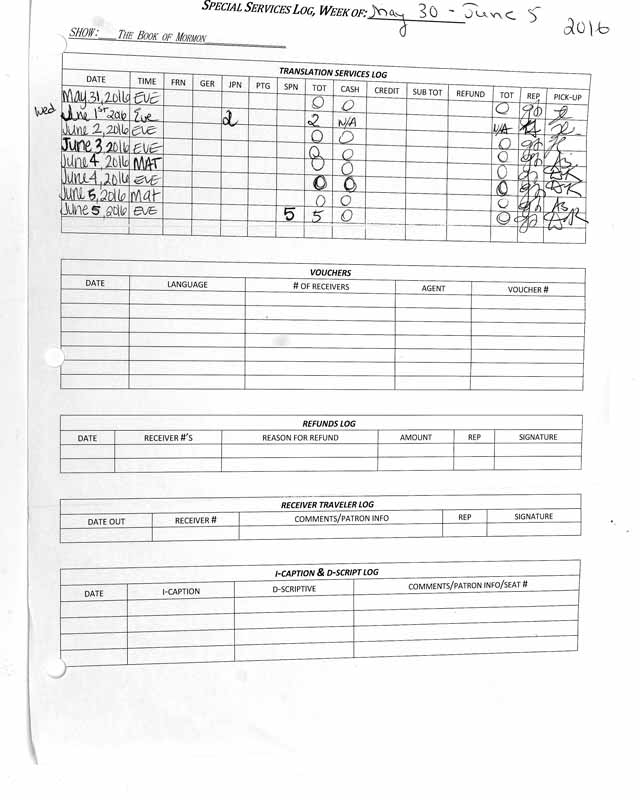 SPECIAL SERVICES LOG, WEEK OF: May 30 - June 5 2016
SHOW: THE BOOK OF MORMON
TRANSLATION SERVICES LOG
DATE TIME FRN GER JPN PTG SPN TOT CASH CREDIT SUB TOT REFUND TOT REP PICK-UP
May 31, 2016 EVE 0 0 0
Wed June 1st 2016 Eve 2 2 N/A N/A
June 2, 2016 EVE 0 0 0
June 3, 2016 EVE 0 0 0
June 4, 2016 MAT 0 0 0
June 4, 2016 EVE 0 0 0
June 5, 2016 Mat 0 0 0
June 5, 2016 EVE 5 5 0 0
VOUCHERS
DATE LANGUAGE # OF RECEIVERS AGENT VOUCHER #
REFUNDS LOG
DATE RECEIVER #'S REASON FOR REFUND AMOUNT REP SIGNATURE
RECEIVER TRAVELER LOG
DATE OUT RECEIVER # COMMENTS/PATRON INFO REP SIGNATURE
I-CAPTION & D-SCRIPT LOG
DATE I-CAPTION D-SCRIPTIVE COMMENTS/PATRON INFO/SEAT #